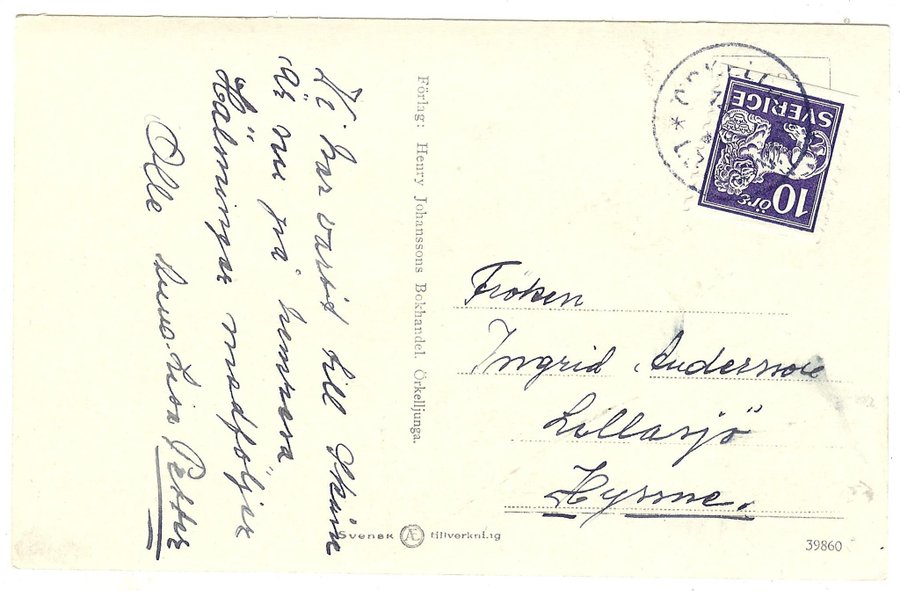 Vi har varit till Skåne
Är nu på hemresa
Hälningar medföljer
Olle Anna-Lisa Petter
Förlag: Henry Johanssons Bokhandel. Örkelljunga.
SVERIGE
10
öre
Fröken
Ingrid Andersson
Lillasjö
Hyssna.
SVENSK Æ tillverkning
39860